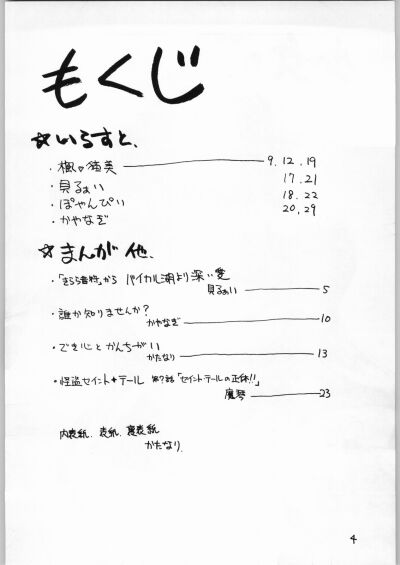 もくじ
☆いらすと、
・楓♡猫美 9.12.19
・貝るぁい 17.21
・ぽやんぴぃ 18.22
・かやなぎ 20,29
☆まんが他、
・「きらら香料」から バイカル湖より深い愛
貝るぁい 5
・誰か知りませんか?
かやなぎ 10
・でき心とかんちがい
かたなり 13
・怪盗セイント✦テール 第?話「セイントテールの正体!!」
魔琴 23
内表紙、表紙、裏表紙
かたなり
4